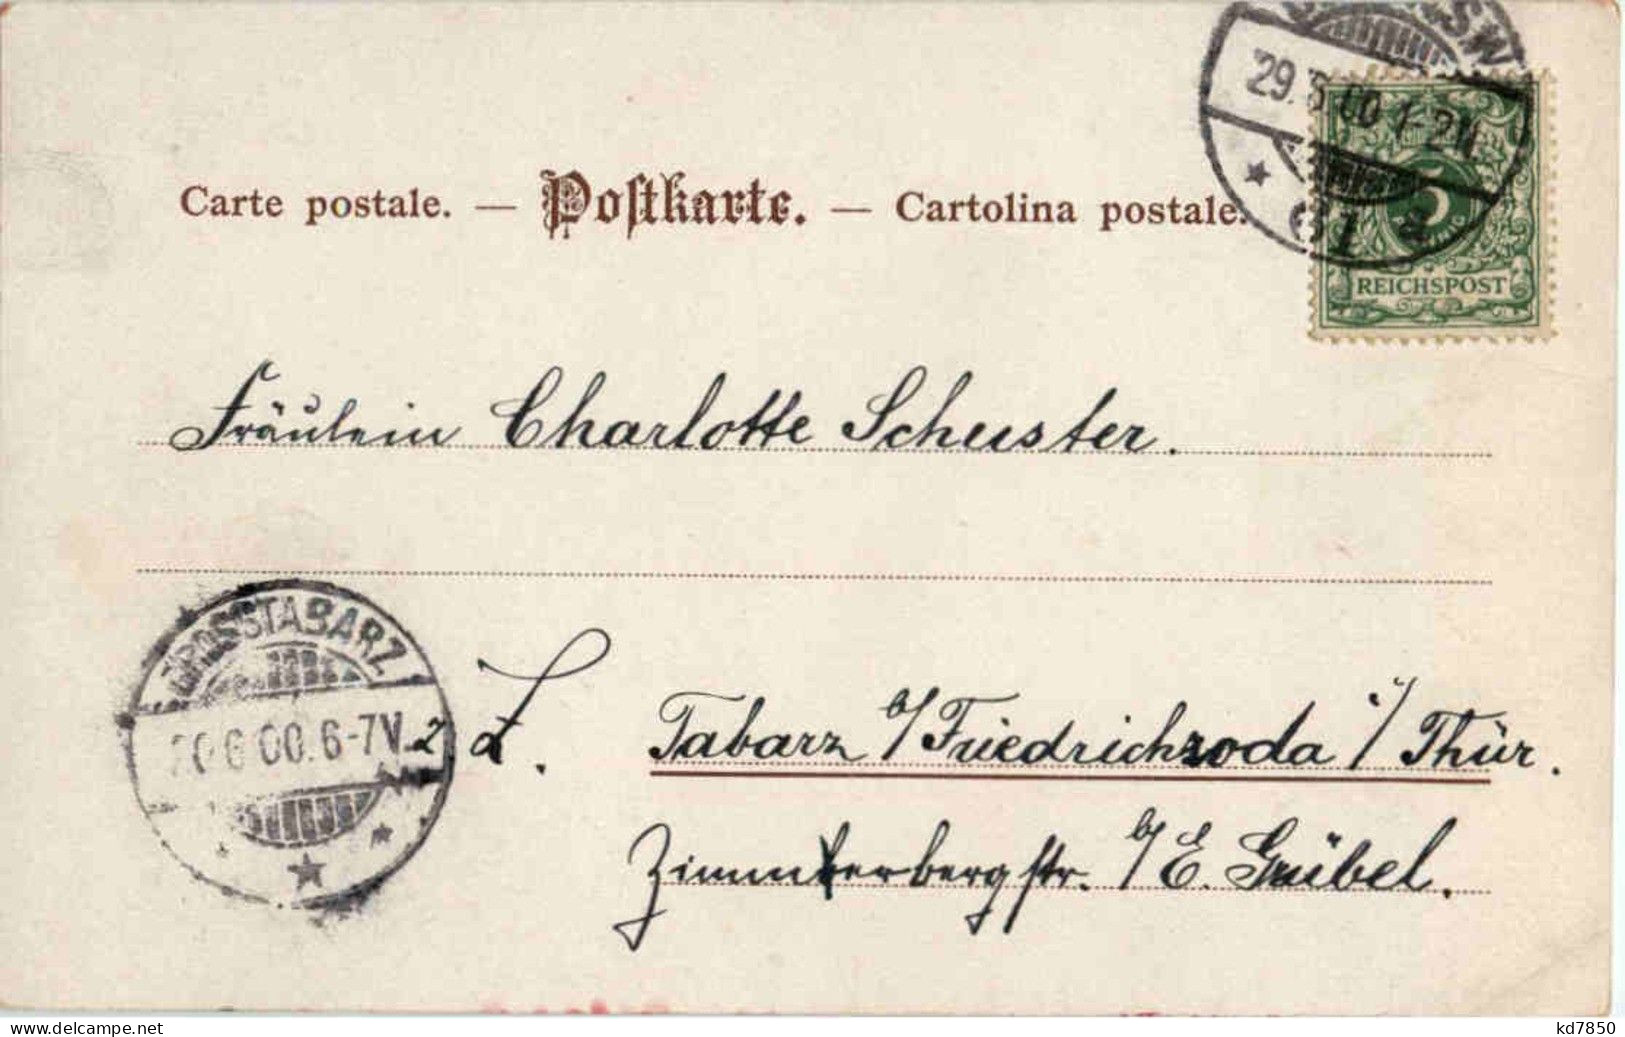 SW
29.5.00 1-2N
Carte postale. — Postkarte. — Cartolina postale.
5
REICHSPOST
Fräulein Charlotte Schuster.
GROSSTABARZ
6 00.6-7V.
z. Z. Tabarz b/Friedrichroda i/Thür.
Zimmerbergstr. b/E. Grübel.
delcampe.net
kd7850